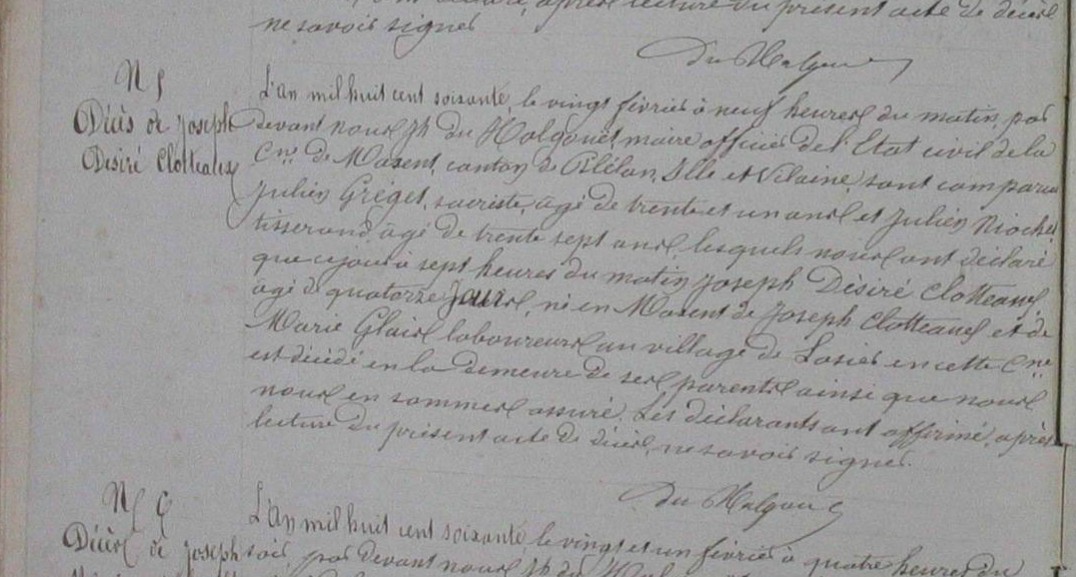 après lecture du présent acte de décès
ne savoir signer
du Halgouet
N 5
Décès de Joseph
Desiré Clotteaux
L'an mil huit cent soixante, le vingt février à neuf heures du matin, par
devant nous Jh du Halgouët maire officier de l'Etat civil de la
Cne de Maxent, canton de Plélan, Ille et Vilaine, sont comparus
Julien Greget, sacriste, agé de trente et un ans et Julien Nioche
tisserand agé de trente sept ans, lesquels nous ont déclaré
que ce jour à sept heures du matin Joseph Désiré Clotteaux
agé de quatorze jours, né en Maxent de Joseph Clotteaux et de
Marie Glais laboureurs au village de Losier en cette Cne
est décédé en la demeure de ses parents ainsi que nous
nous en sommes assuré. Les déclarants ont affirmé, après
lecture du présent acte de décès, ne savoir signer.
du Halgouet
N 6
Décès de Joseph
L'an mil huit cent soixante, le vingt et un février à quatre heures du
soir, par devant nous Jh du